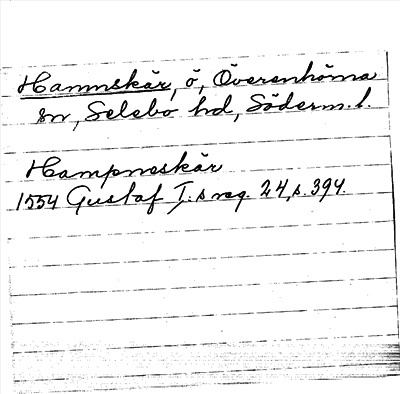 Hamnskär, ö, Överenhörna
sn, Selebo hd, Söderm. l.
Hampneskär
1554 Gustaf I:s reg. 24, s. 394.